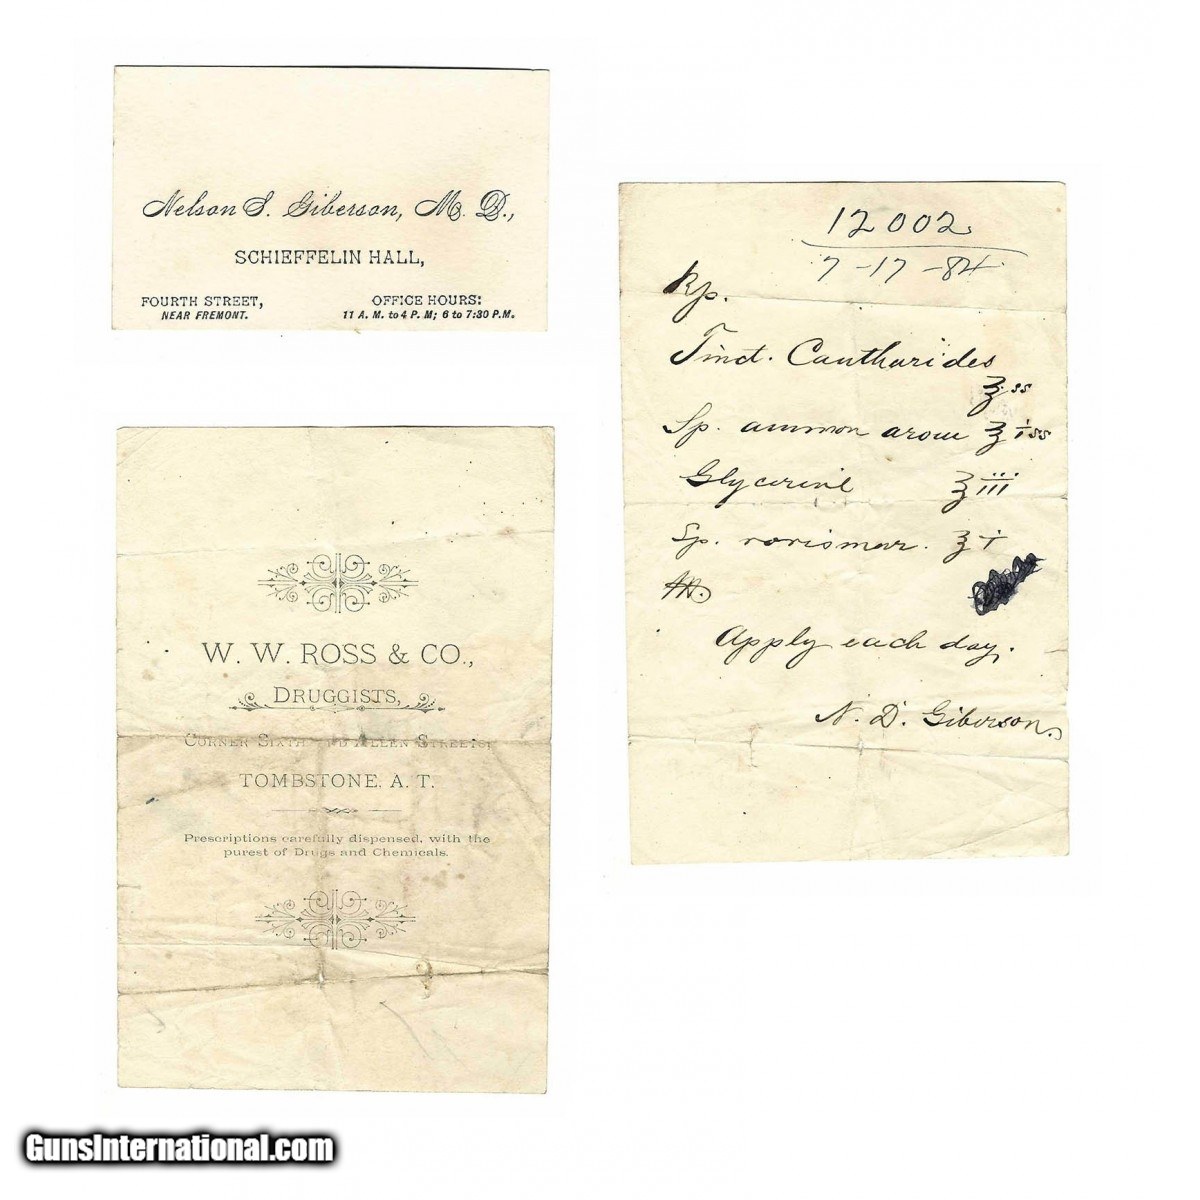 Nelson S. Giberson, M. D.,
SCHIEFFELIN HALL,
FOURTH STREET,
NEAR FREMONT.
OFFICE HOURS:
11 A. M. to 4 P. M; 6 to 7:30 P.M.
W. W. ROSS & CO.,
DRUGGISTS,
CORNER SIXTH AND ALLEN STREETS,
TOMBSTONE, A. T.
Prescriptions carefully dispensed, with the
purest of Drugs and Chemicals.
12002
7-17-84
Rp.
Tinct. Cantharides
ʒss
Sp. ammon arom ʒiss
Glycerine ʒiii
Sp. rorismar. ʒi
M.
Apply each day.
N. D. Giberson.
GunsInternational.com